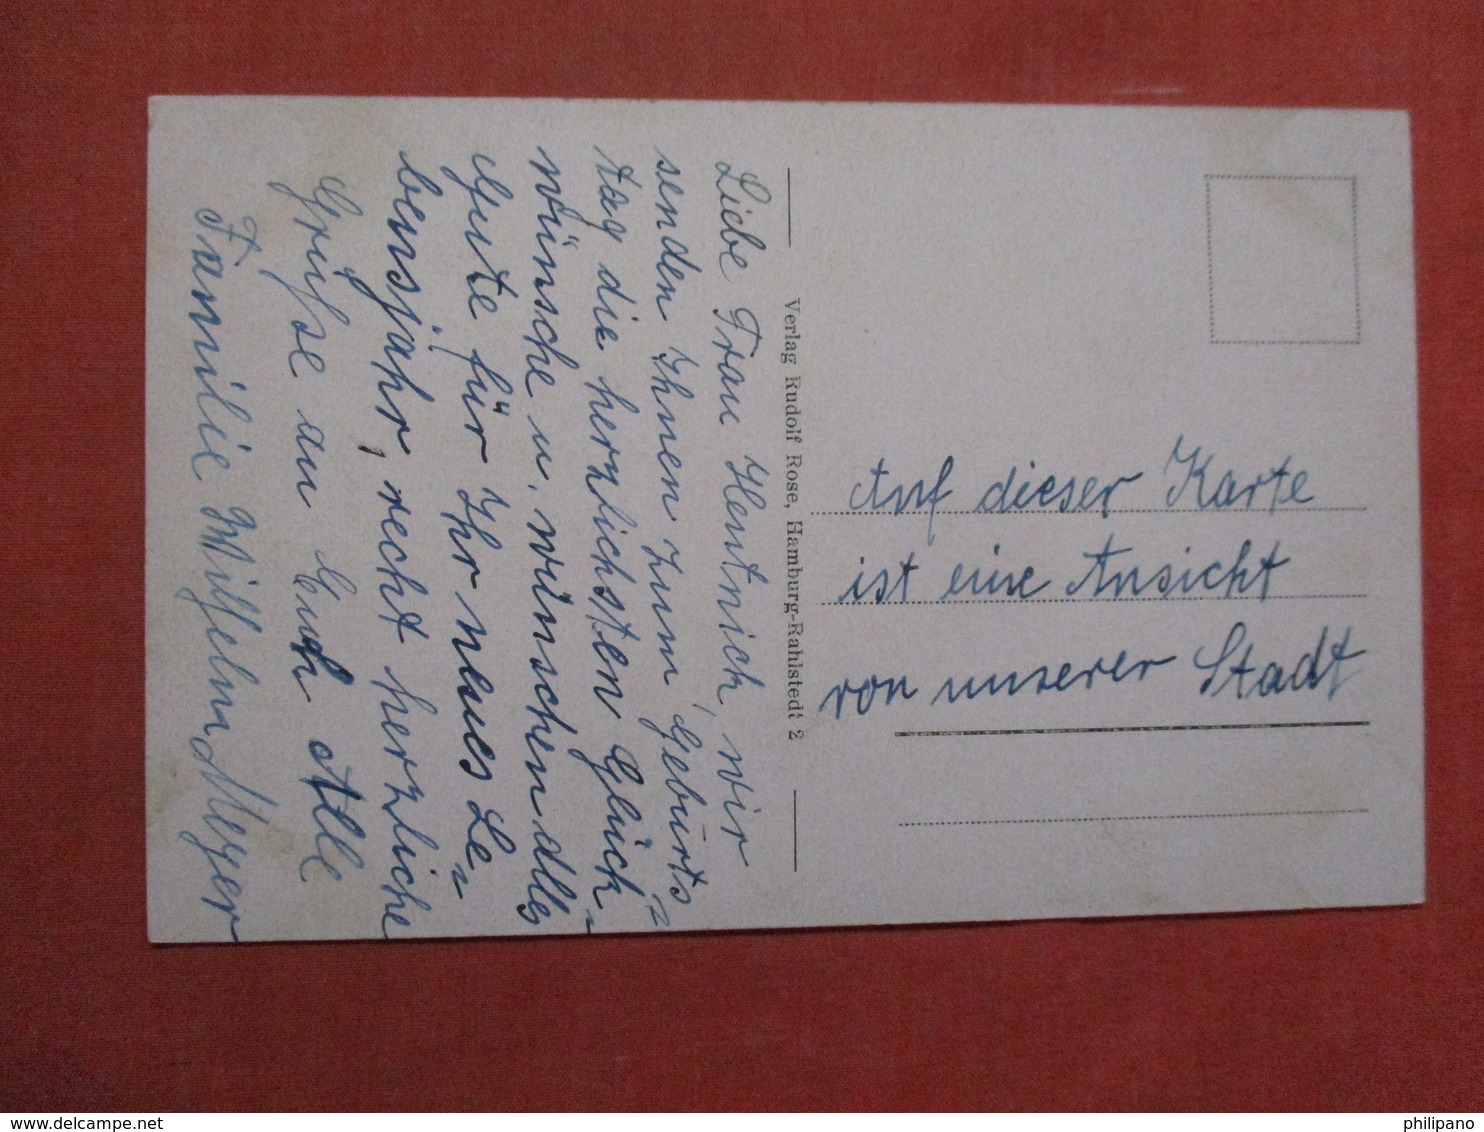 Liebe Frau Hentnich, wir
senden Ihnen zum Geburts=
tag die herzlichsten Glück-
wünsche u. wünschen alles
Gute für Ihr neues Le-
bensjahr, recht herzliche
Grüße an Euch Alle
Familie Wilhelm Meyer
Verlag Rudolf Rose, Hamburg-Rahlstedt 2
Auf dieser Karte
ist eine Ansicht
von unserer Stadt
www.delcampe.net
philipano